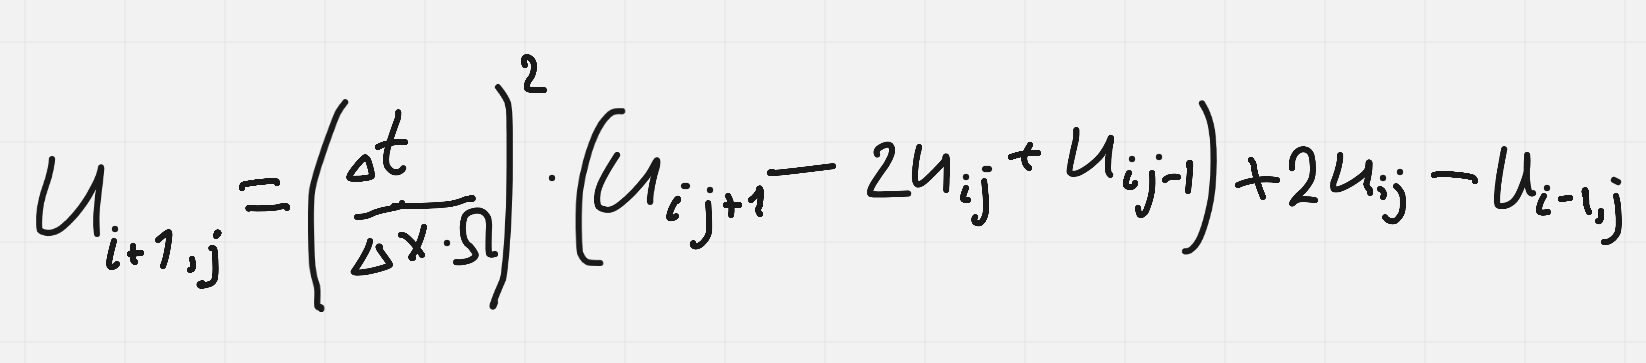 $u_{i+1,j} = \left(\frac{\Delta t}{\Delta x \cdot \Omega}\right)^2 \cdot \left(u_{ij+1} - 2u_{ij} + u_{ij-1}\right) + 2u_{ij} - u_{i-1,j}$